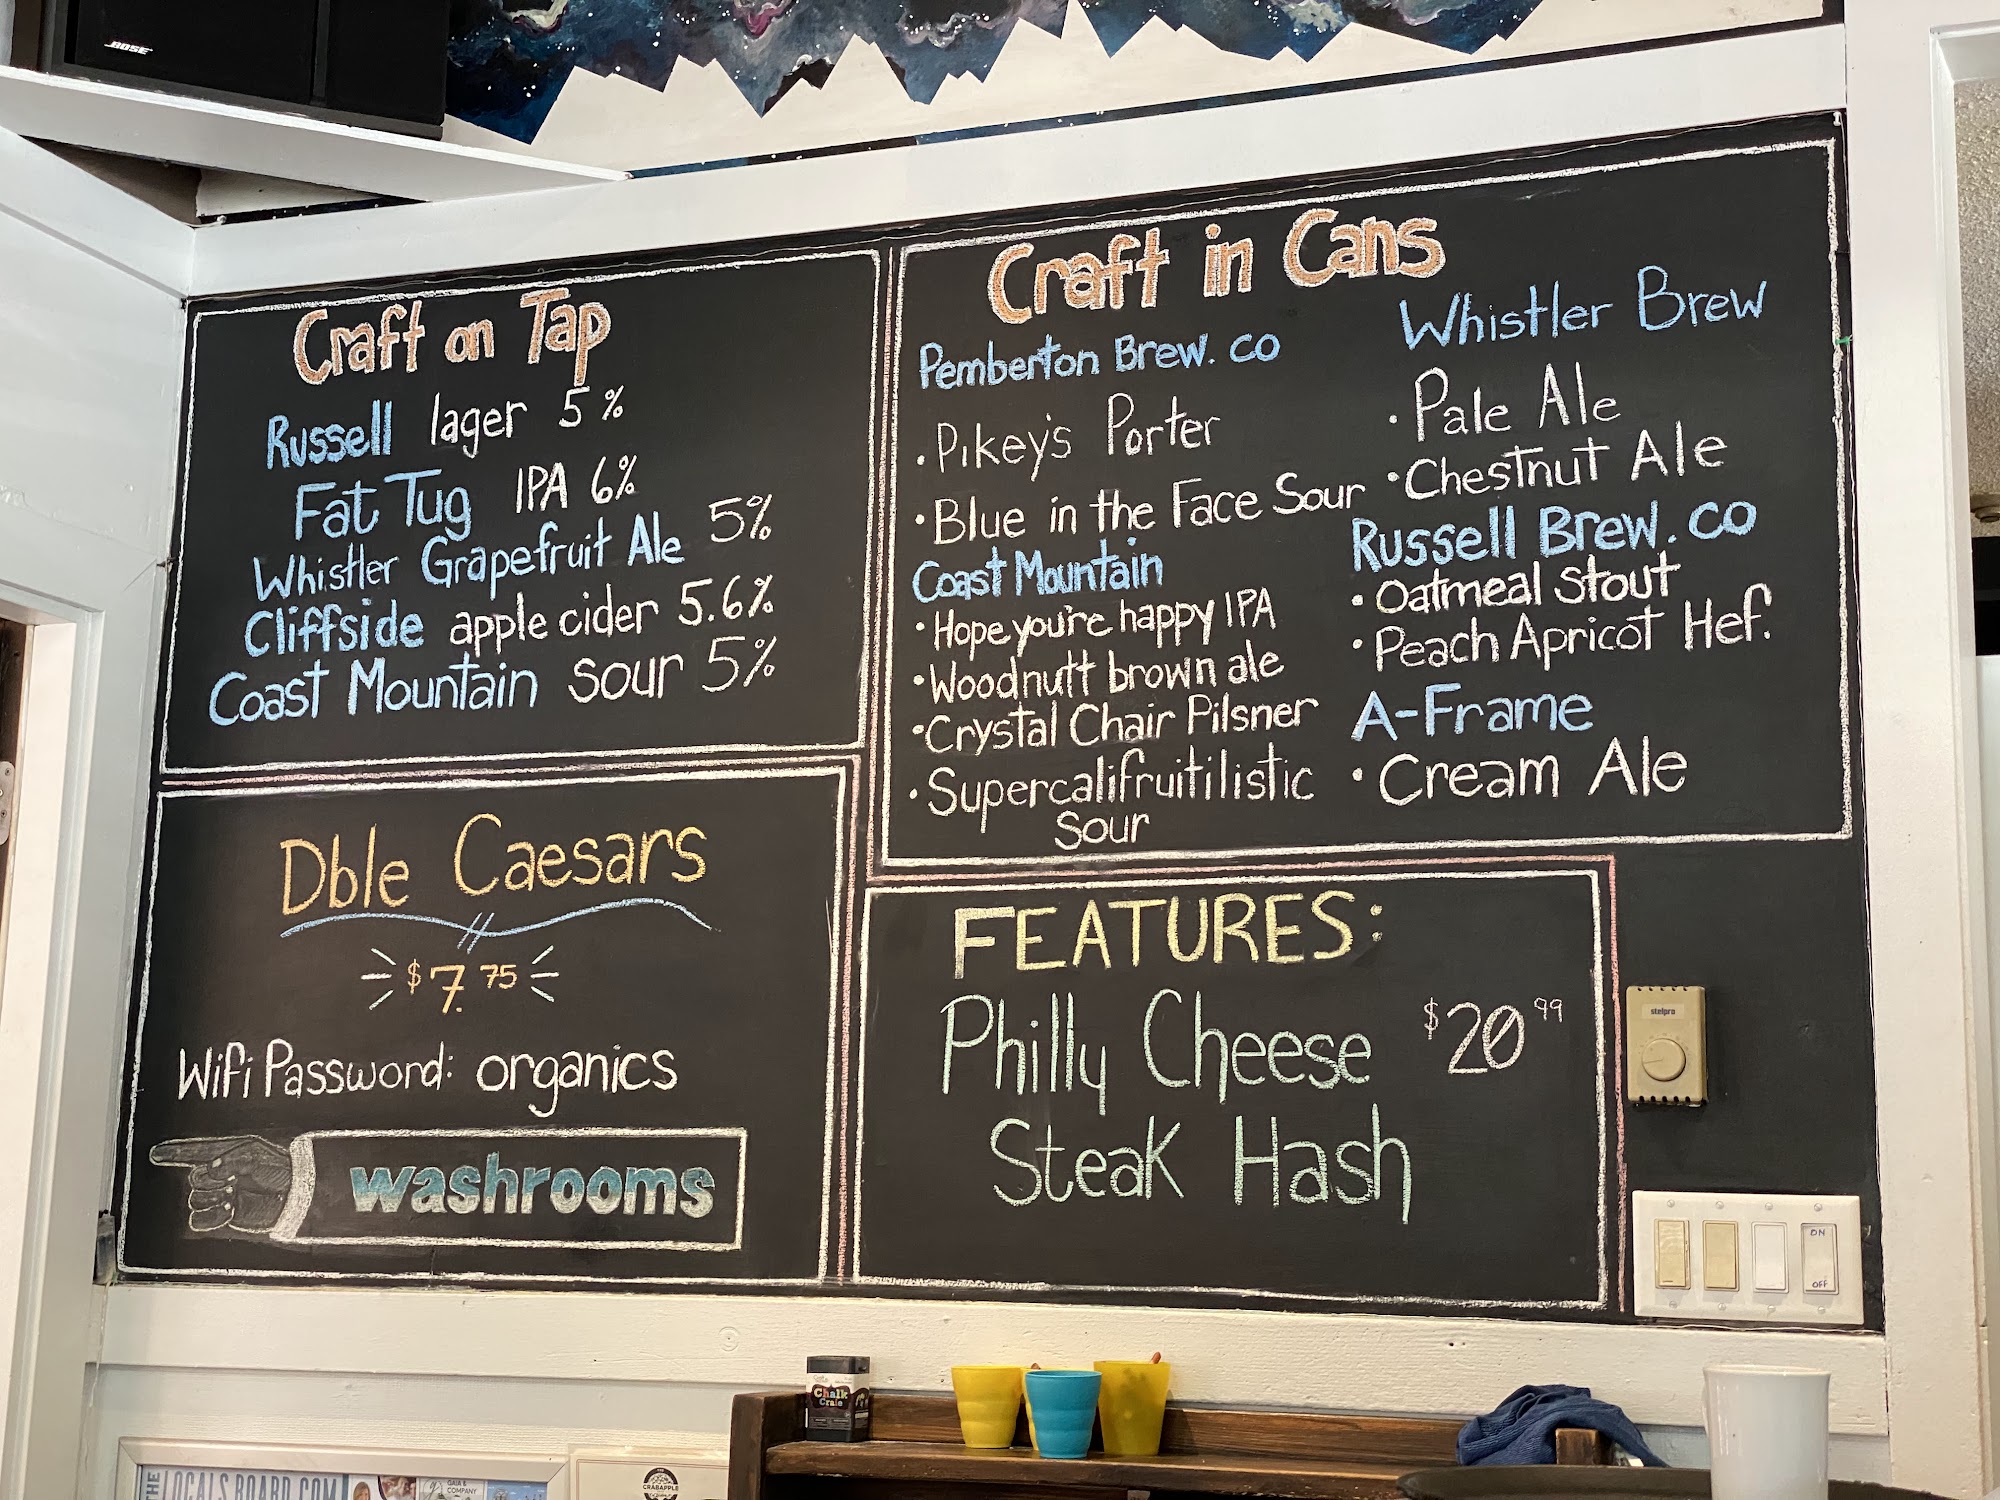 BOSE
Craft on Tap
Russell lager 5%
Fat Tug IPA 6%
Whistler Grapefruit Ale 5%
Cliffside apple cider 5.6%
Coast Mountain sour 5%
Dble Caesars
$7.75
Wifi Password: organics
washrooms
Craft in Cans
Pemberton Brew. co
• Pikey's Porter
• Blue in the Face Sour
Coast Mountain
• Hope you're happy IPA
• Woodnutt brown ale
• Crystal Chair Pilsner
• Supercalifruitilistic
Sour
Whistler Brew
• Pale Ale
• Chestnut Ale
Russell Brew. co
• Oatmeal Stout
• Peach Apricot Hef.
A-Frame
• Cream Ale
FEATURES:
Philly Cheese $20.99
Steak Hash
stelpro
ON
OFF
Chalk
Crate
THE
LOCALSBOARD.COM
GAIA &
COMPANY
CRABAPPLE